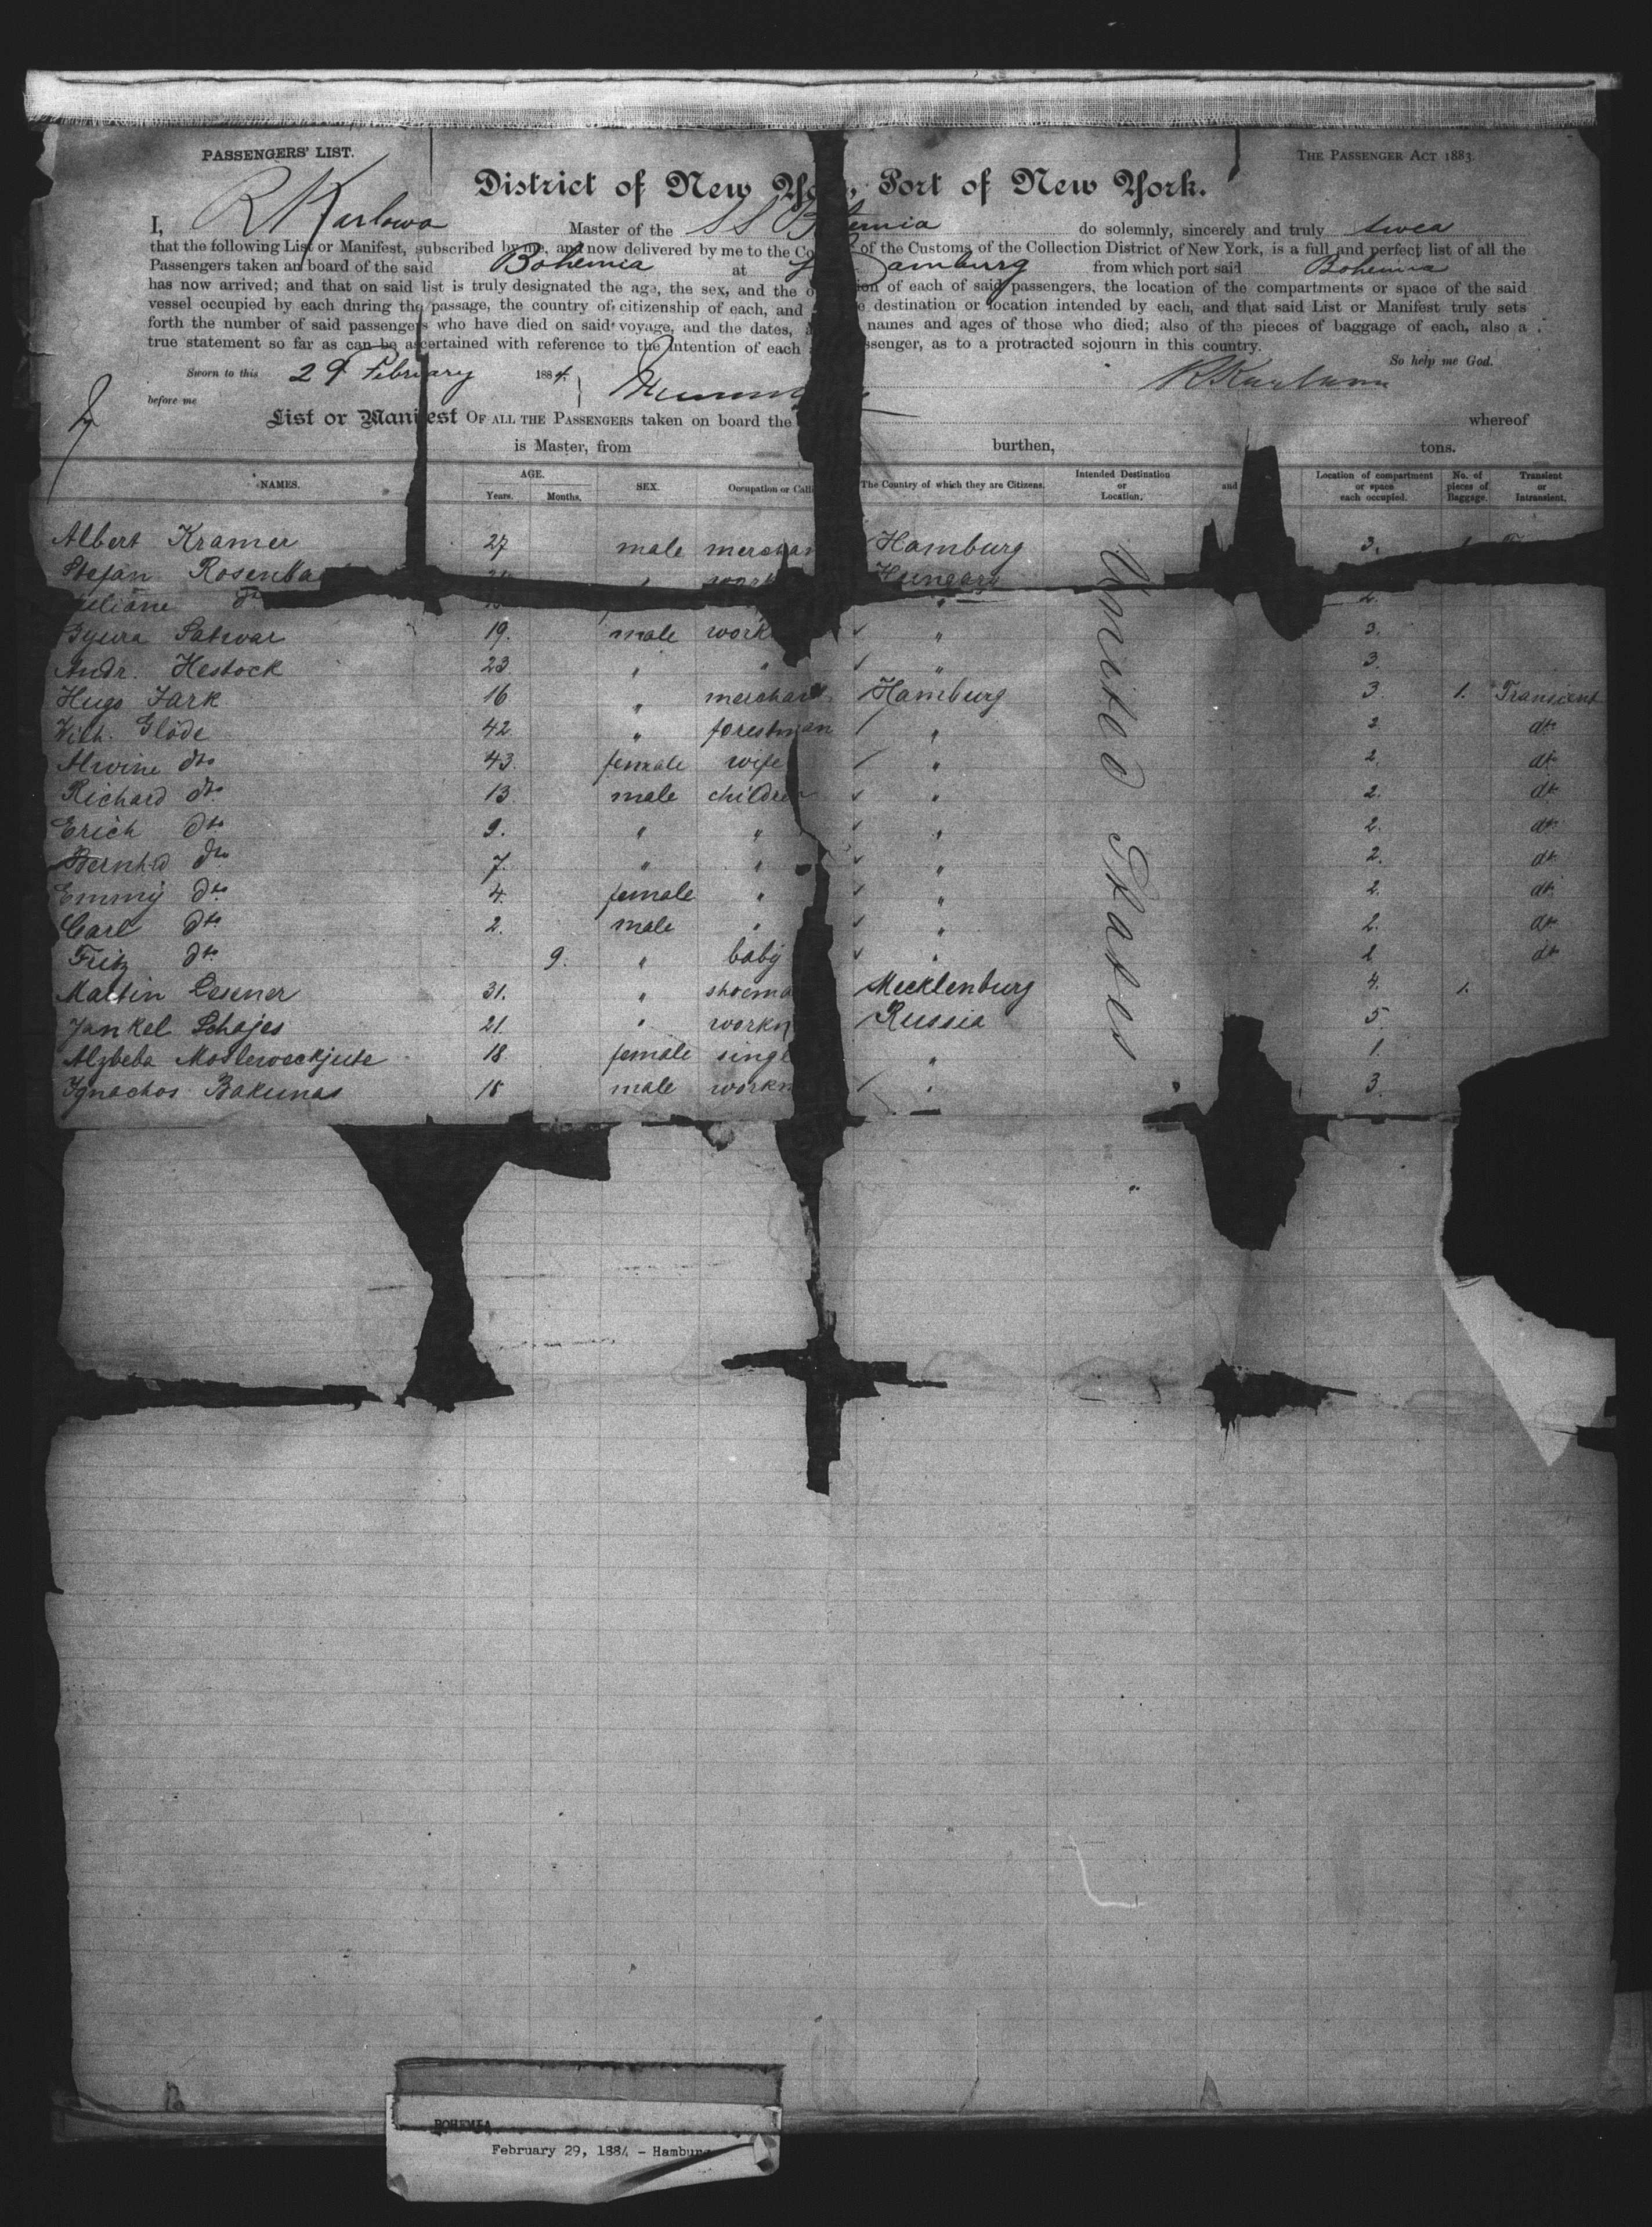 PASSENGERS' LIST.
THE PASSENGER ACT 1883.
District of New Yo, Port of New York.
I, R Karlowa Master of the SS Bohemia do solemnly, sincerely and truly swea
that the following List or Manifest, subscribed by me, and now delivered by me to the Co of the Customs of the Collection District of New York, is a full and perfect list of all the
Passengers taken an board of the said Bohemia at Hamburg from which port said Bohemia
has now arrived; and that on said list is truly designated the age, the sex, and the o ion of each of said passengers, the location of the compartments or space of the said
vessel occupied by each during the passage, the country of citizenship of each, and e destination or location intended by each, and that said List or Manifest truly sets
forth the number of said passengers who have died on said voyage, and the dates, names and ages of those who died; also of the pieces of baggage of each, also a
true statement so far as can be ascertained with reference to the intention of each ssenger, as to a protracted sojourn in this country.
So help me God.
Sworn to this 29 February 1884.
R Karlowa
before me
List or Manifest OF ALL THE PASSENGERS taken on board the whereof
is Master, from burthen, tons.
NAMES. AGE. Years. Months. SEX. Occupation or Calli The Country of which they are Citizens. Intended Destination or Location. and Location of compartment or space each occupied. No. of pieces of Baggage. Transient or Intransient.
Albert Kramer 27 male merchan Hamburg 3.
Stefan Rosenba work Hungary
Juliane dto " 2.
Satwar 19. male work " 3.
Andr. Hestock 23 " " " 3.
Hugo Jark 16 " merchant Hamburg 3 1. Transient
Wilh. Glöde 42 " forestman " 2. dto
Alwine dto 43. female wife " 2. dto
Richard dto 13. male children " 2. dto
Erich dto 9. " " " 2. dto
Bernhd dto 7. " " " 2. dto
Emmy dto 4. female " " 2. dto
Carl dto 2. male " " 2. dto
Fritz dto 9. " baby " 2 dto
Martin Lesener 31. " shoema Mecklenburg 4. 1.
Jankel Schajes 21. " workm Russia 5.
Alzbeba 18. female singl " 1.
Ignachos Bakunas 18 male workm " 3.
United States
BOHEMIA
February 29, 1884 - Hamburg